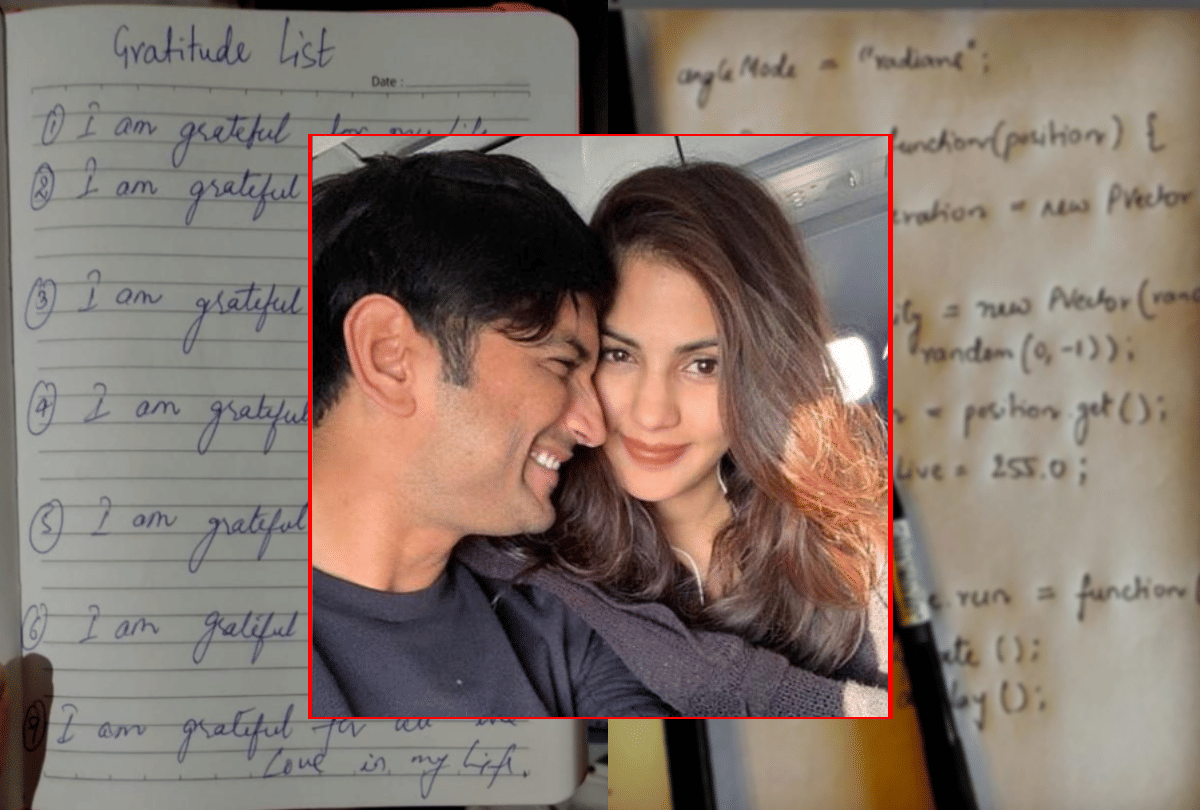 Gratitude List
Date :
① I am grateful for my life
② I am grateful
③ I am grateful
④ I am grateful
⑤ I am grateful
⑥ I am grateful
I am grateful for all the
Love in my Life.
angleMode = "radians";
function(position) {
= new PVector
= new PVector(
random(0, -1));
= position.get();
= 255.0;
.run = function(
();
();